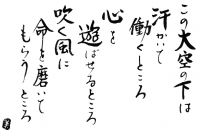 この大空の下は
汗かいて
働くところ
心を
遊ばせるところ
吹く風に
命を磨いて
もらうところ